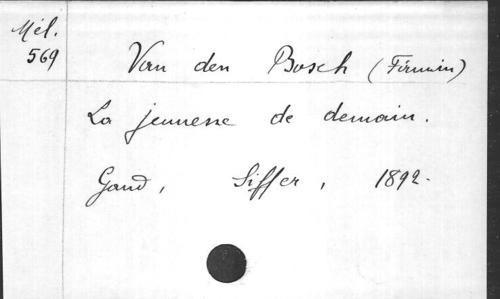 Mél.
569
Van den Bosch (Firmin)
La jeunesse de demain.
Gand, Siffer, 1892.